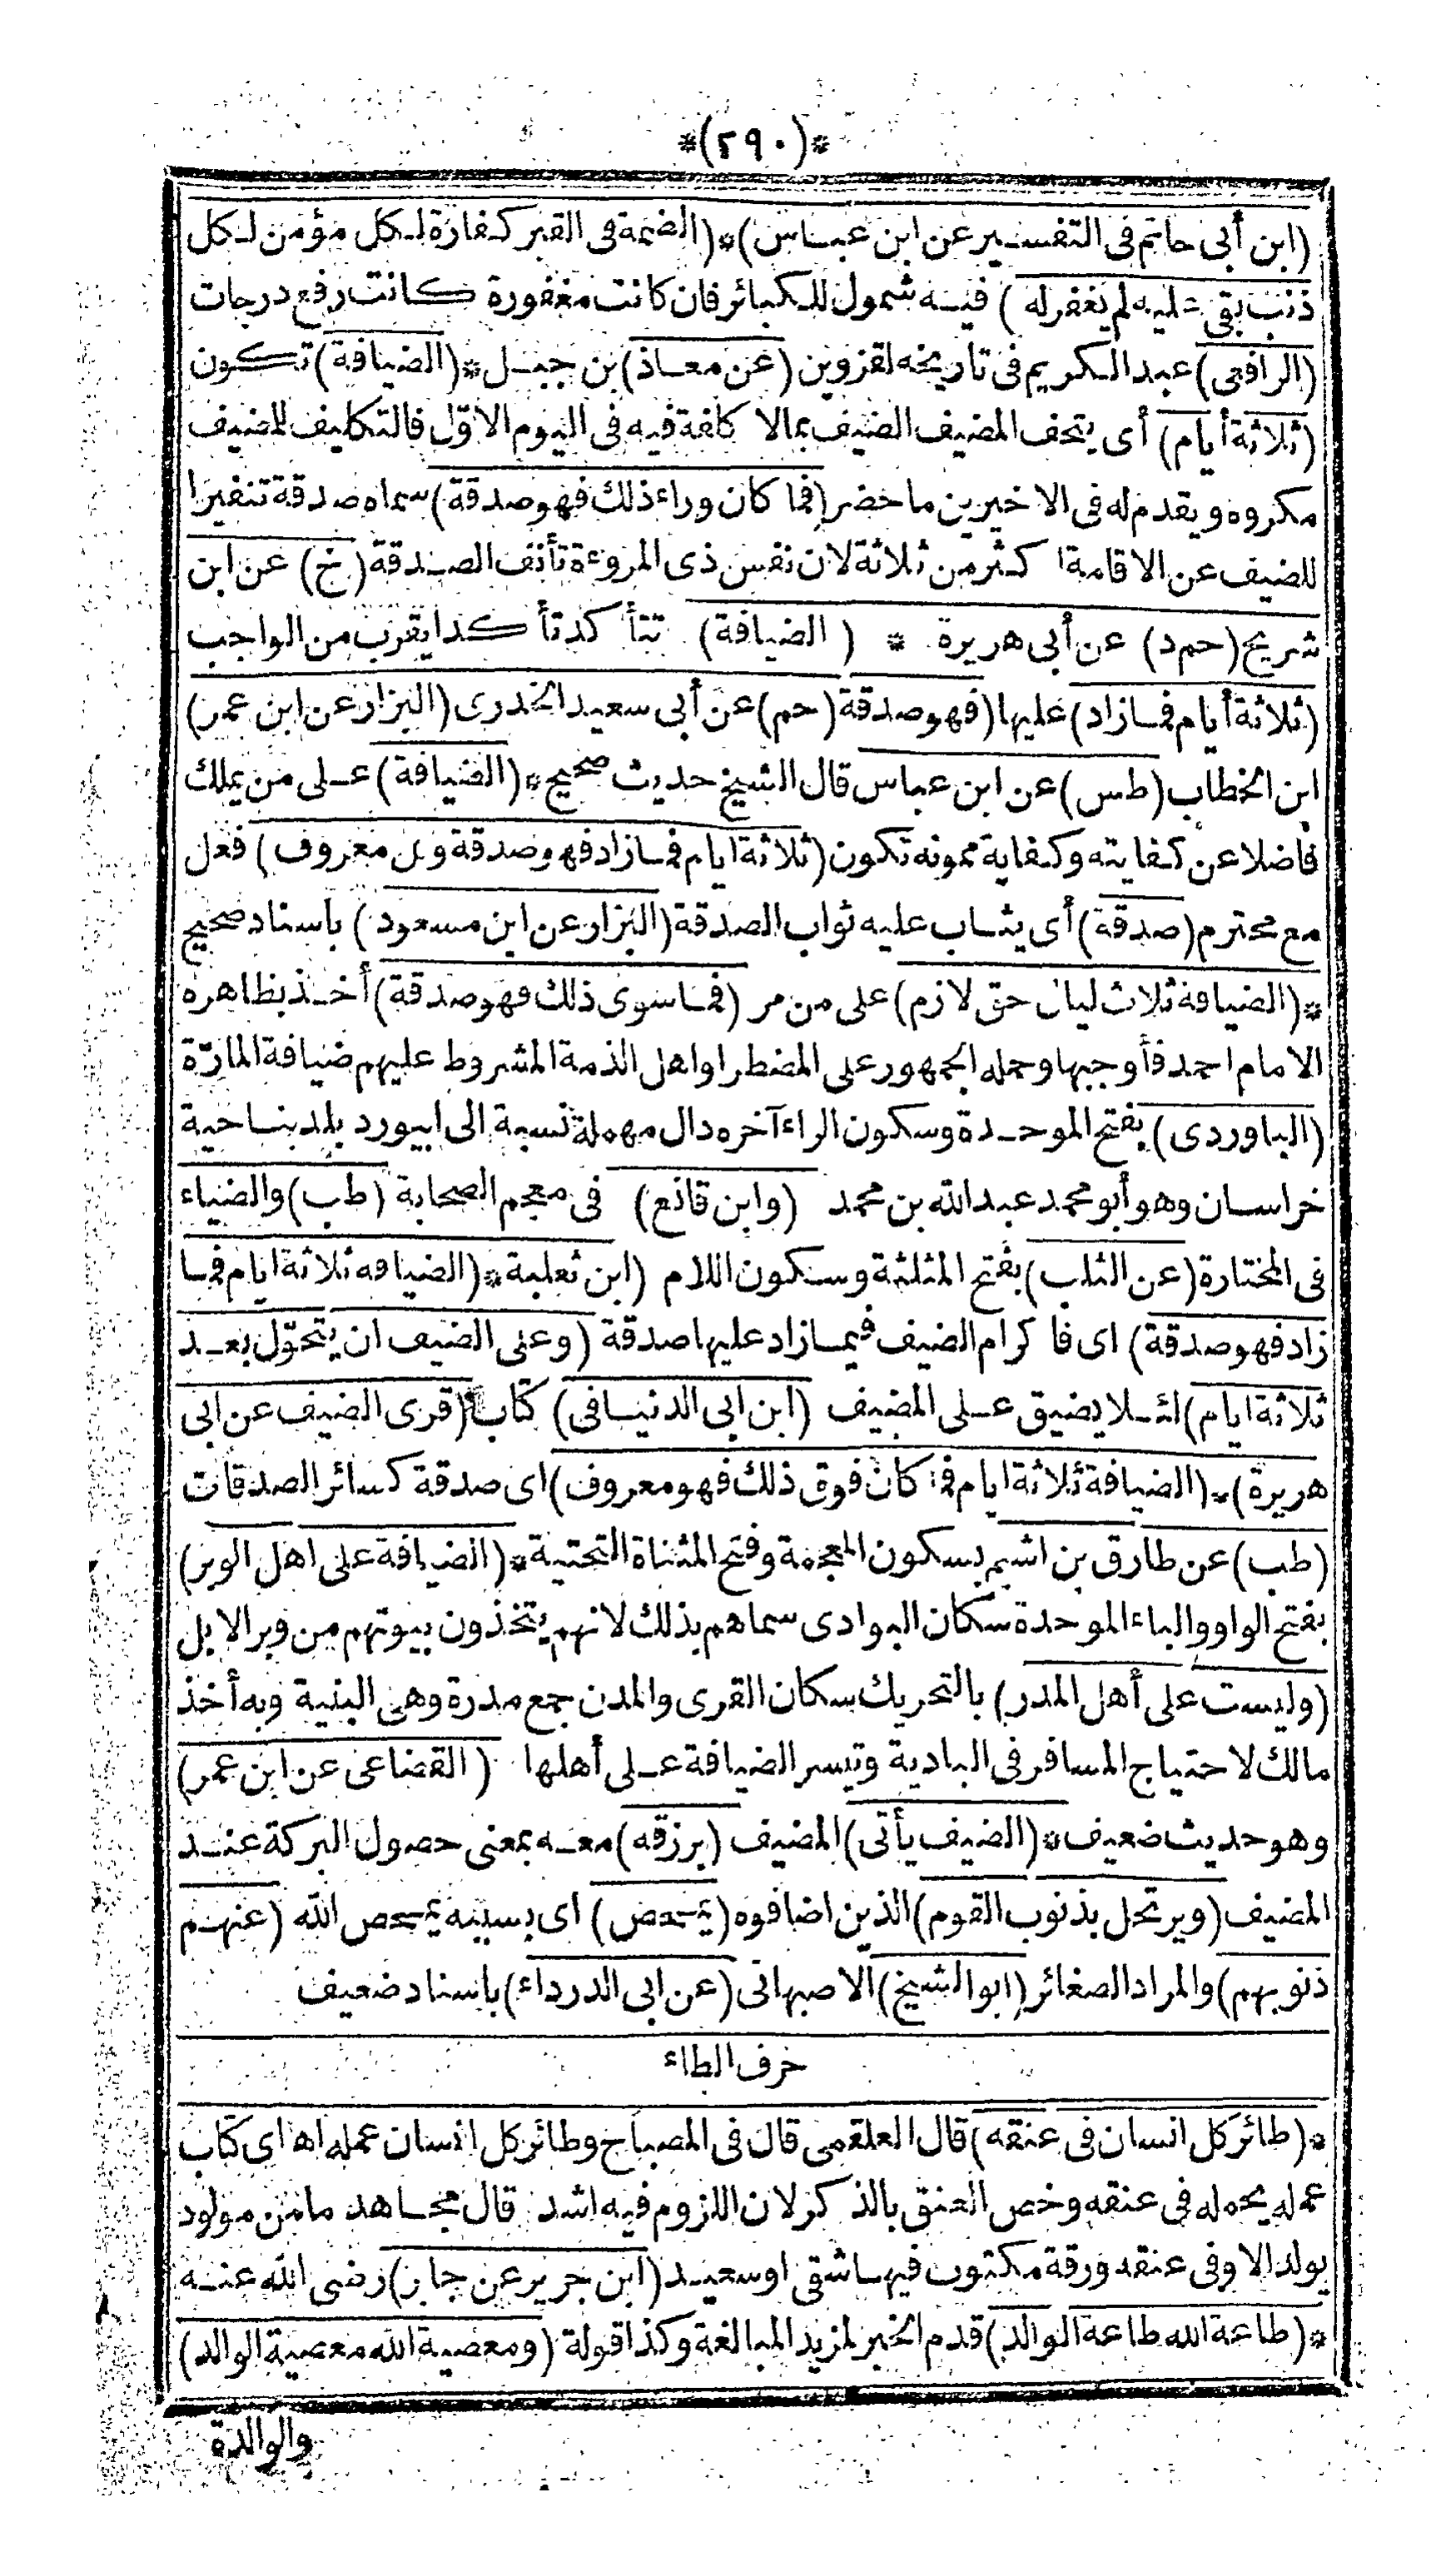 *(٢٩٠)*
(ابن أبى حاتم فى التفسير عن ابن عباس)*(الضمة فى القبر كفارة لكل مؤمن لكل
ذنب بقى عليه لم يغفرله) فيه شمول للكبائر فان كانت مغفورة كانت رفع درجات
(الرافعى) عبد الكريم فى تاريخه لقزوين (عن معاذ) بن جبل*(الضيافة) تكون
(ثلاثة أيام) أى يتحف المضيف الضيف بمالا كلفة فيه فى اليوم الاوّل فالتكليف للضيف
مكروه ويقدم له فى الاخيرين ماحضر (فما كان وراء ذلك فهو صدقة) سماه صدقة تنفيرا
للضيف عن الاقامة اكثر من ثلاثة لان نفس ذى المروءة تأنف الصدقة (خ) عن ابن
شريح (حم د) عن أبى هريرة * (الضيافة) تتأكد تأكدا يقرب من الواجب
(ثلاثة أيام فمازاد) عليها (فهو صدقة (حم) عن أبى سعيد الخدرى (البزار عن ابن عمر)
ابن الخطاب (طس) عن ابن عباس قال الشيخ حديث صحيح*(الضيافة) على من يملك
فاضلا عن كفايته وكفاية ممونه تكون (ثلاثة ايام فمازاد فهو صدقة وكل معروف) فعل
مع محترم (صدقة) أى يثاب عليه ثواب الصدقة (البزار عن ابن مسعود) باسناد صحيح
*(الضيافة ثلاث ليال حق لازم) على من مر (فماسوى ذلك فهو صدقة) أخذ بظاهره
الامام احمد فأوجبها وحمله الجمهور على المضطر او اهل الذمة المشروط عليهم ضيافة المارّة
(الباوردى) بفتح الموحدة وسكون الراء آخره دال مهملة نسبة الى ابيورد بلد بناحية
خراسان وهو أبو محمد عبد الله بن محمد (وابن قانع) فى معجم الصحابة (طب) والضياء
فى المختارة (عن الثلب) بفتح المثلثة وسكون اللام (ابن ثعلبة*(الضيافة ثلاثة ايام فما
زاد فهو صدقة) اى فاكرام الضيف فيمازاد عليها صدقة (وعلى الضيف ان يتحوّل بعد
ثلاثة ايام) لئلا يضيق على المضيف (ابن ابى الدنيا فى) كتاب (قرى الضيف عن ابى
هريرة)*(الضيافة ثلاثة ايام فما كان فوق ذلك فهو معروف) اى صدقة كسائر الصدقات
(طب) عن طارق بن اشيم بسكون المعجمة وفتح المثناة التحتية*(الضيافة على اهل الوبر)
بفتح الواو والباء الموحدة سكان البوادى سماهم بذلك لانهم يتخذون بيوتهم من وبر الابل
(وليست على أهل المدر) بالتحريك سكان القرى والمدن جمع مدرة وهى البنية وبه أخذ
مالك لاحتياج المسافر فى البادية وتيسر الضيافة على أهلها (القضاعى عن ابن عمر)
وهو حديث ضعيف*(الضيف يأتى) المضيف (برزقه) معه بمعنى حصول البركة عند
المضيف (ويرتحل بذنوب القوم) الذين اضافوه (يمحص) اى بسببه يمحص الله (عنهم
ذنوبهم) والمراد الصغائر (ابو الشيخ) الاصبهانى (عن ابى الدرداء) باسناد ضعيف
حرف الطاء
*(طائر كل انسان فى عنقه) قال العلقمى قال فى المصباح وطائر كل انسان عمله اهـ اى كتاب
عمله يحمله فى عنقه وخص العنق بالذكر لان اللزوم فيه اشد قال مجاهد مامن مولود
يولد الا وفى عنقه ورقة مكتوب فيها شقى او سعيد (ابن جرير عن جابر) رضى الله عنه
*(طاعة الله طاعة الوالد) قدم الخبر لمزيد المبالغة وكذا قوله (ومعصية الله معصية الوالد)
والوالدة